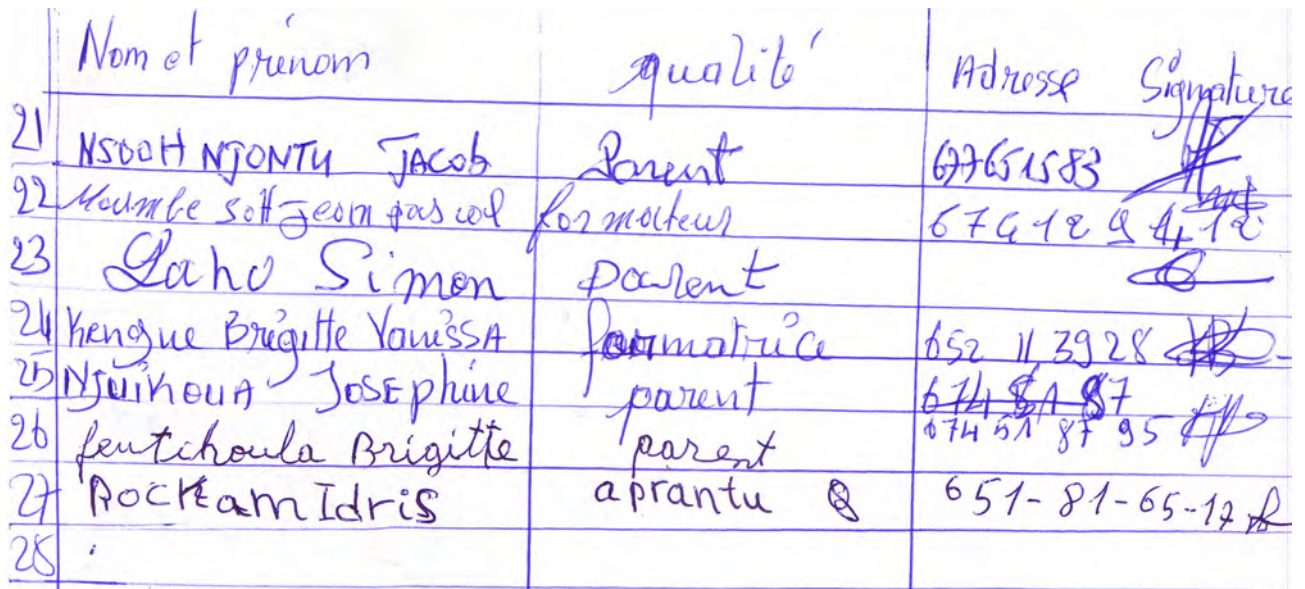 Nom et prénom qualité Adresse Signature
21 NSOOH NJONTU JACOB Parent 677651583
22 Moumbe Sott Jean pascal formateur 674129412
23 Laho Simon parent
24 Kengue Brigitte Vanissa formatrice 652 11 39 28
25 NJUIKOUA JOSEPhine parent 674 51 87
26 feutchoula Brigitte parent 674 51 87 95
27 Rockam Idris aprantu 651-81-65-17
28